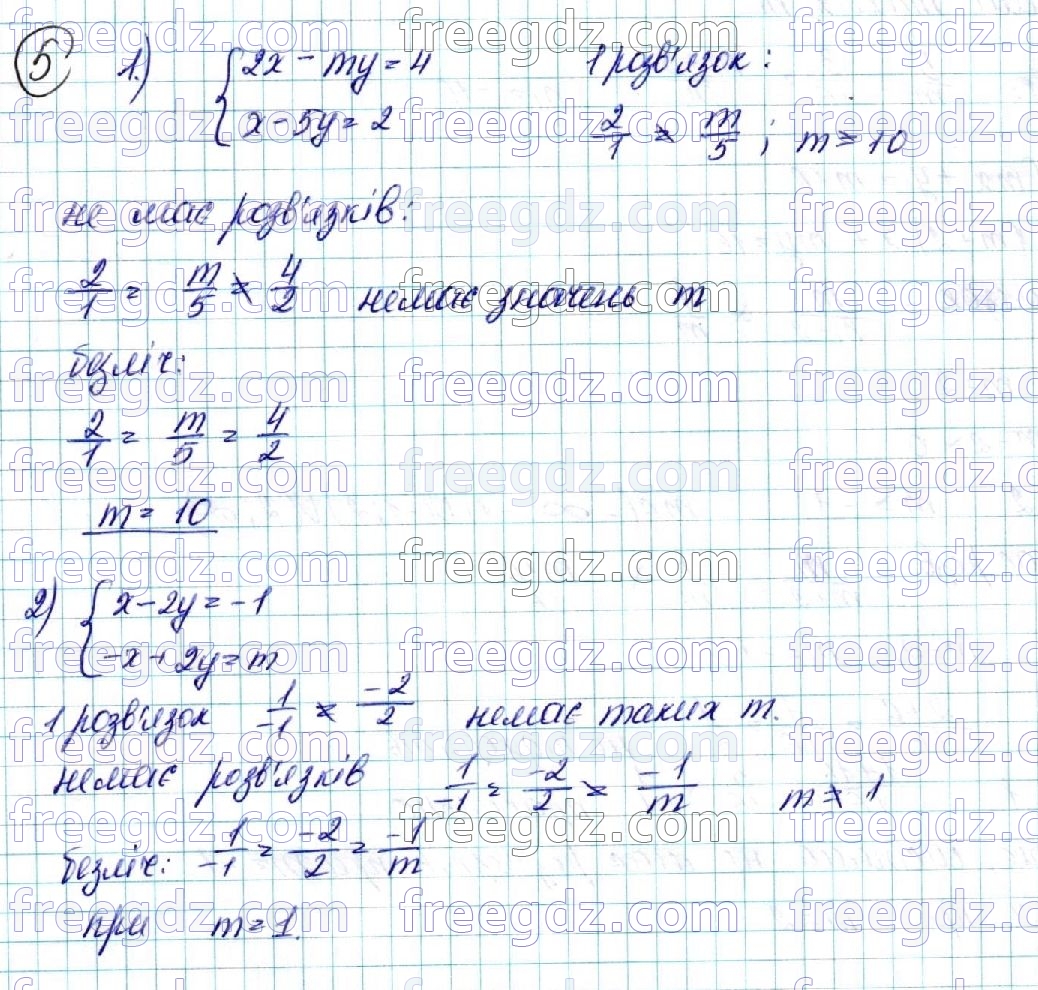 5 1.) { 2x - my = 4 1 розв'язок:
x - 5y = 2 2/1 ≠ m/5 ; m ≠ 10
не має розв'язків:
2/1 = m/5 ≠ 4/2 немає значень m
безліч:
2/1 = m/5 = 4/2
m = 10
2) { x - 2y = -1
-x + 2y = m
1 розв'язок 1/-1 ≠ -2/2 немає таких m.
немає розв'язків 1/-1 = -2/2 ≠ -1/m m ≠ 1
безліч: 1/-1 = -2/2 = -1/m
при m = 1.
freegdz.com